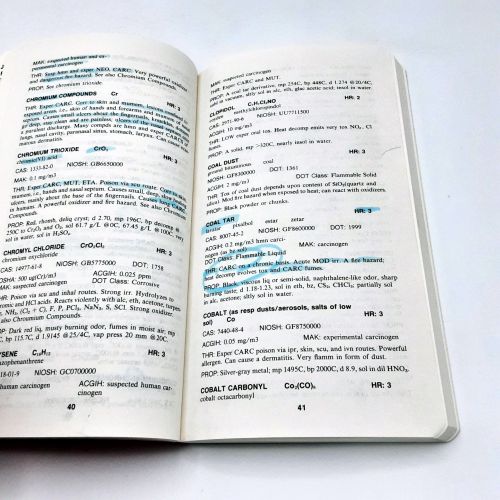 MAK: suspected human and ex-
perimental carcinogen
THR: Susp hmn and exper NEO, CARC. Very powerful oxidizer
and dangerous fire hazard. See also Chromium Compounds.
PROP: See chromium trioxide.
CHROMIUM COMPOUNDS Cr HR: 3
THR: Exper CARC. Corr to skin and mumem,
exposed areas, i.e., skin of hands and forearms and mumem of
septum. Causes small ulcers about the fingernails,
deep, stay clean and are painless, ulcers of the nasal
a purulent discharge. Many compds are hmn and exper
lungs, nasal cavity, paranasal sinus, stomach, larynx. Can cause
mumem dermatitis.
CHROMIUM TRIOXIDE CrO₃ HR: 3
chromic(VI) acid
CAS: 1333-82-0 NIOSH: GB6650000
MAK: 0.1 mg/m3
THR: Exper CARC, MUT, ETA. Poison via scu route. Corr to skin,
mumem, i.e., hands and nasal septum. Causes small, deep, clean
ulcers, mainly about the base of the fingernails. Causes lung CARC
in humans. A powerful oxidizer and fire hazard. See also Chromium
Compounds.
PROP: Red. rhomb, deliq cryst; d 2.70, mp 196C, bp decomp @
250C to Cr₂O₃ and O₂, sol 61.7 g/L @0C, 67.45 g/L @100C, very
sol in water, sol in H₂SO₄.
CHROMYL CHLORIDE CrO₂Cl₂ HR: 3
chromium oxychloride
CAS: 14977-61-8 NIOSH: GB5775000 DOT: 1758
OSHA: 500 ug(Cr)/m3 ACGIH: 0.025 ppm
MAK: suspected carcinogen DOT Class: Corrosive
THR: Poison via scu and inhal routes. Strong irr. Hydrolyzes to
chromic and HCl acids. Reacts violently with alc, eth, acetone, turpen-
NH₃, (Cl₂ + C), F, P, PCl₃, NaN₃, S, SCl. Strong oxidizer.
also Chromium Compounds.
PROP: Dark red liq, musty burning odor, fumes in moist air; mp
bp 115.7C, d 1.9145 @25/4C, vap press 20 mm @20C.
YSENE C₁₈H₁₂ HR: 3
zophenanthrene
18-01-9 NIOSH: GC0700000
human carcinogen ACGIH: suspected human car-
cinogen
40
MAK: suspected carcinogen
THR: Exper CARC and MUT.
PROP: A coal tar derivative, mp 254C, bp 448C, d 1.274 @20/4C,
insol in vacuum, sltly sol in alc, eth, glac acetic acid; insol in water.
CLOPIDOL C₇H₇Cl₂NO HR: 2
CAS: 2971-90-6 NIOSH: UU7711500
ACGIH: 10 mg/m3
THR: LOW exper oral tox. Heat decomp emits very tox NOₓ, Cl
fumes.
PROP: A solid. mp >320C, nearly insol in water.
COAL DUST HR: 3
ground bituminous coal
CAS: DOT: 1361
ACGIH: 2 mg/m3 DOT Class: Flammable Solid
THR: Tox of coal dust depends upon content of SiO₂(quartz and
others). Mod fire hazard when exposed to heat; can react with oxidizers.
PROP: Black powder or chunks.
COAL TAR HR: 3
pixalbol estar zetar
CAS: 8007-45-2 NIOSH: GF8600000 DOT: 1999
ACGIH: 0.2 mg/m3 hmn carci- MAK: carcinogen
nogen (as bz sol)
DOT Class: Flammable Liquid
THR: CARC on a chronic basis. Acute MOD irr. A fire hazard;
heat decomp evolves tox and CARC fumes.
PROP: Black, viscous liq or semi-solid, naphthalene-like odor, sharp
burning taste, d 1.18-1.23, sol in eth, bz, CS₂, CHCl₃; partially sol
in alc, acetone; sltly sol in water.
COBALT (as resp dusts/aerosols, salts of low
sol) Co HR: 3
CAS: 7440-48-4 NIOSH: GF8750000
ACGIH: 0.05 mg/m3 MAK: experimental carcinogen
THR: Exper CARC. Poison via ipr, skn, scu, and ivn routes. Powerful
allergen. Can cause a dermatitis. Very flamm in form of dust.
PROP: Silver-gray metal; mp 1495C, bp 2000C, d 8.9, sol in dil HNO₃.
COBALT CARBONYL Co₂(CO)₈ HR: 3
cobalt octacarbonyl
41